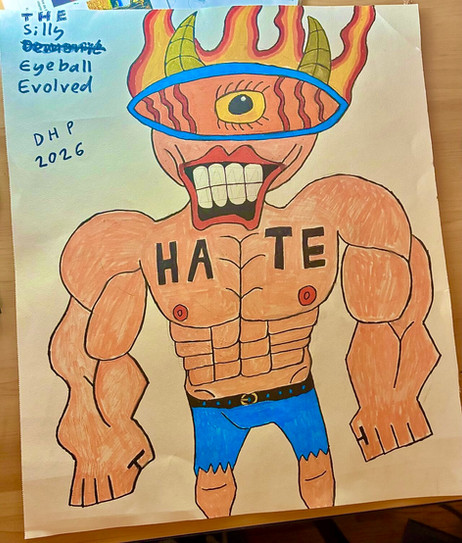 THE
Silly
Eyeball
Evolved
DHP
2026
HATE
H